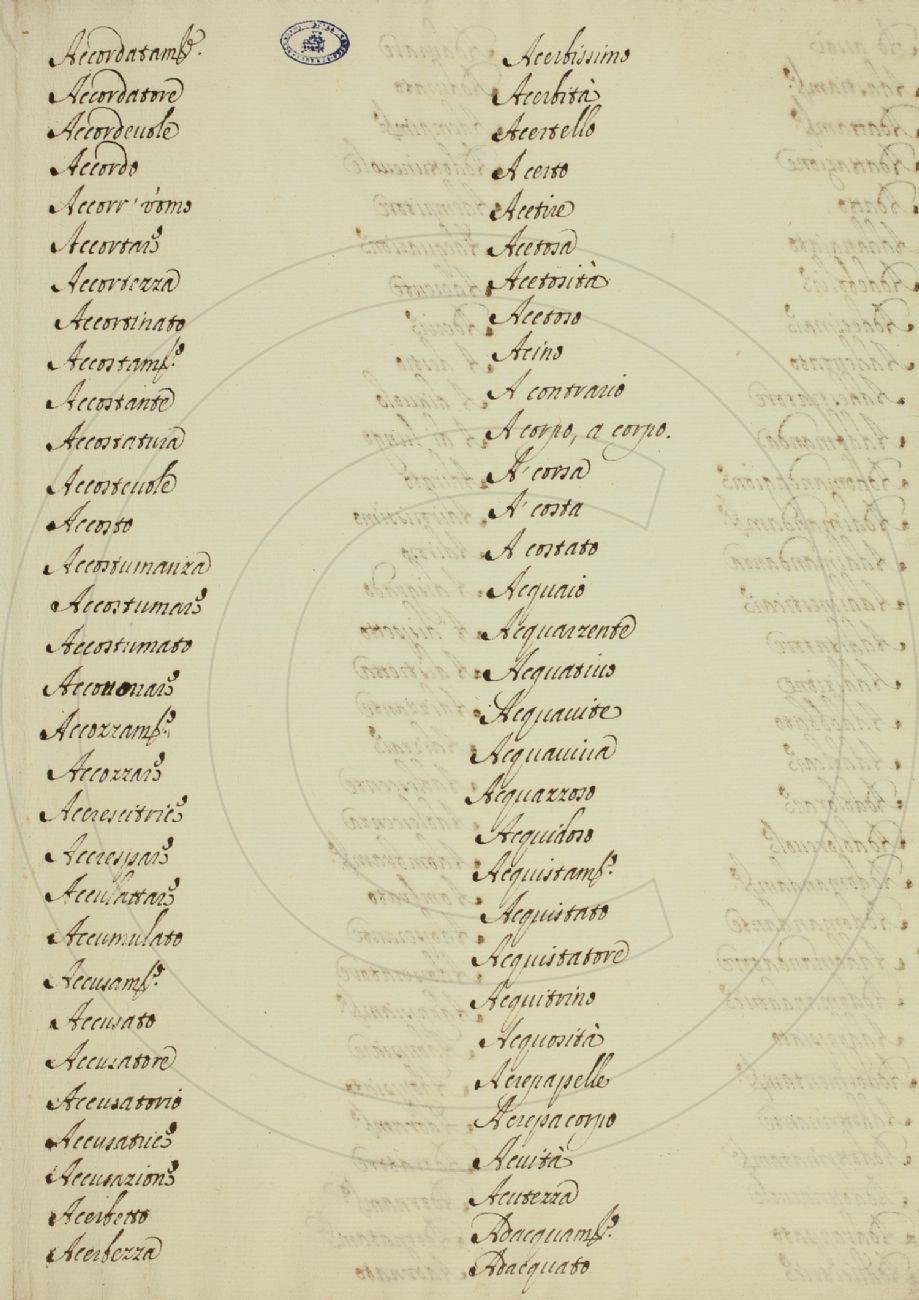 Accordatam.to
Accordatore
Accordeuole
Accordo
Accorr' vomo
Accortare
Accortezza
Accortinato
Accostam.to
Accostante
Accostatura
Accosteuole
Accosto
Accostumanza
Accostumare
Accostumato
Accozzam.to
Accozzare
Accrescitrice
Accrespare
Acculattare
Accumulato
Accusam.to
Accusato
Accusatore
Accusatorio
Accusatrice
Accusazione
Acerbetto
Acerbezza
Acerbissimo
Acerbità
Acertello
Acerto
Acetire
Acetosa
Acetosità
Acetoso
Acino
A contrario
A corpo, a corpo.
A' corsa
A' costa
A costato
Acquaio
Acquarzente
Acquatiuo
Acquauite
Acquauiua
Acquazzoso
Acquidoso
Acquistam.to
Acquistato
Acquistatore
Acquitrino
Acquosità
Acrepapelle
Acrepacorpo
Acuità
Acutezza
Adacquam.to
Adacquato